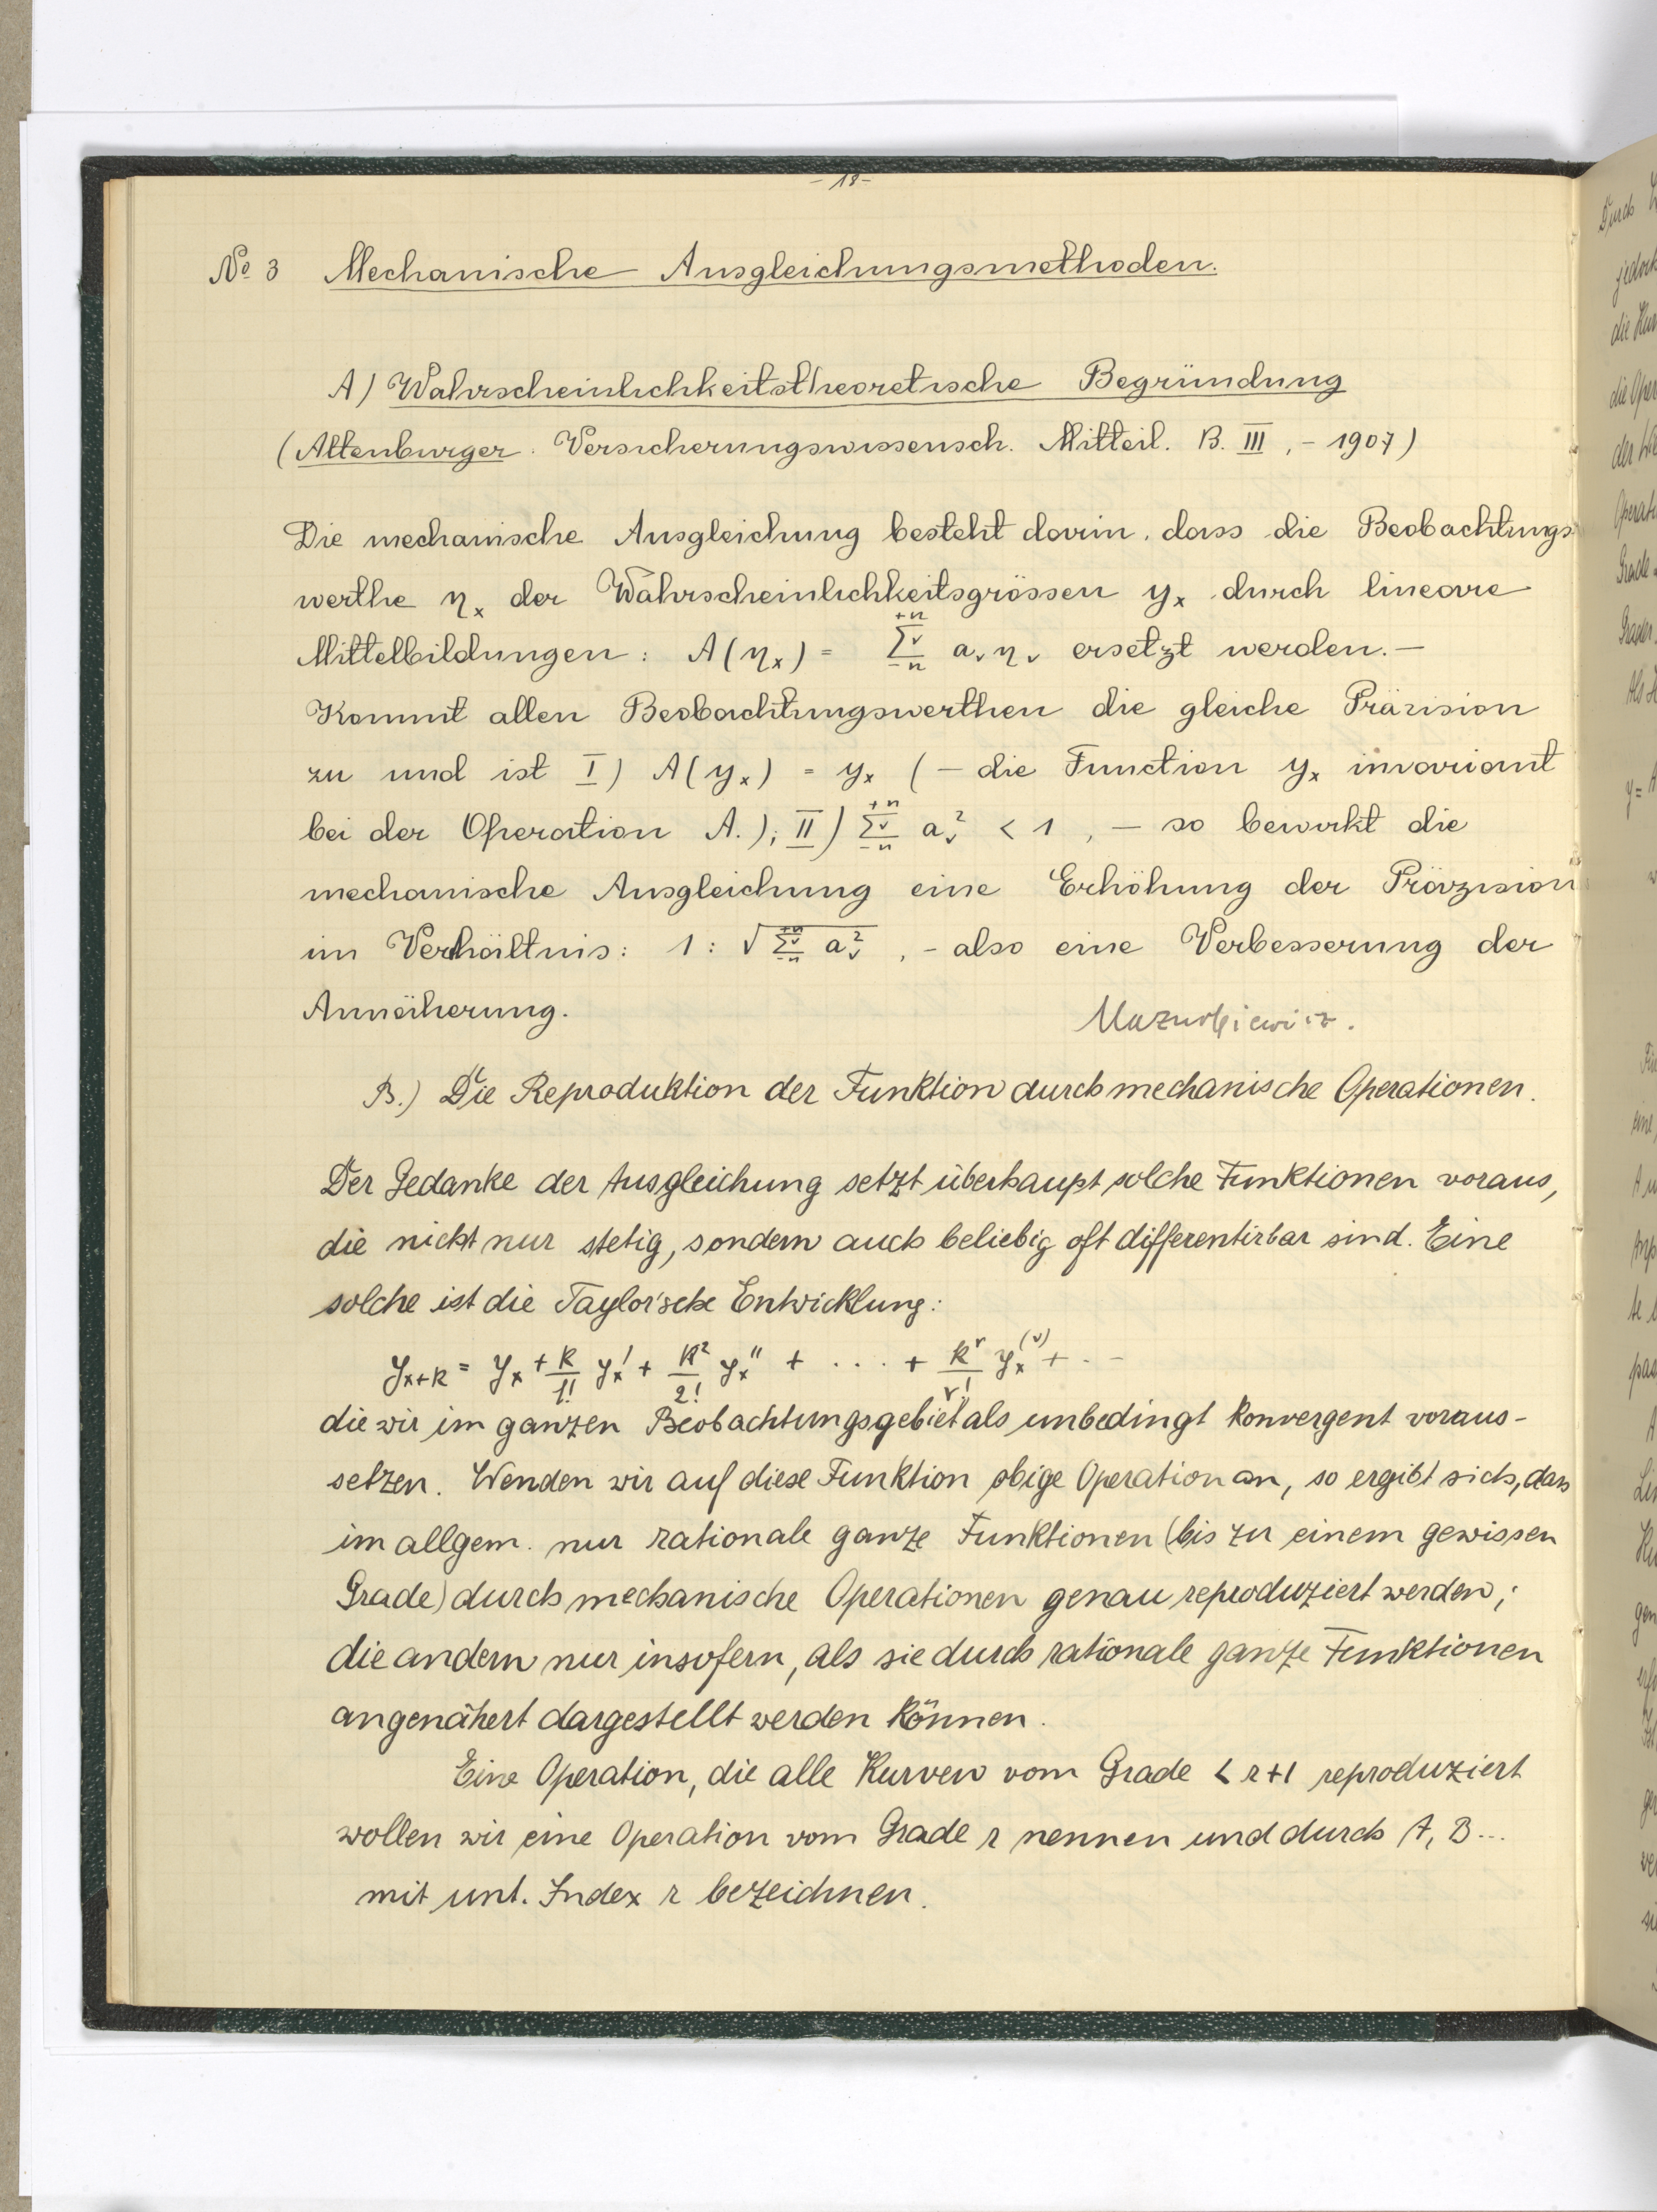 - 18 -
No 3 Mechanische Ausgleichungsmethoden.
A) Wahrscheinlichkeitstheoretische Begründung
(Altenburger. Versicherungswissensch. Mitteil. B. III, - 1907)
Die mechanische Ausgleichung besteht darin, dass die Beobachtungs
werthe η_x der Wahrscheinlichkeitsgrössen y_x durch lineare
Mittelbildungen: A(η_x) = Σ_ν^{+n}_{-n} a_ν η_ν ersetzt werden. —
Kommt allen Beobachtungswerthen die gleiche Präzision
zu und ist I) A(y_x) = y_x (— die Function y_x invariant
bei der Operation A.); II) Σ_ν^{+n}_{-n} a_ν^2 < 1, — so bewirkt die
mechanische Ausgleichung eine Erhöhung der Präzision
im Verhältnis: 1 : √Σ_ν^{+n}_{-n} a_ν^2, - also eine Verbesserung der
Annäherung.
Mazurkiewicz.
B.) Die Reproduktion der Funktion durch mechanische Operationen.
Der Gedanke der Ausgleichung setzt überhaupt solche Funktionen voraus,
die nicht nur stetig, sondern auch beliebig oft differentirbar sind. Eine
solche ist die Taylor'sche Entwicklung:
y_{x+k} = y_x + k/1! y_x' + k^2/2! y_x'' + .... + k^r/r! y_x^{(r)} + . . -
die wir im ganzen Beobachtungsgebiet als unbedingt konvergent voraus-
setzen. Wenden wir auf diese Funktion obige Operation an, so ergibt sich, dass
im allgem. nur rationale ganze Funktionen (bis zu einem gewissen
Grade) durch mechanische Operationen genau reproduziert werden;
die andern nur insofern, als sie durch rationale ganze Funktionen
angenähert dargestellt werden können.
Eine Operation, die alle Kurven vom Grade < r+1 reproduziert
wollen wir eine Operation vom Grade r nennen und durch A, B...
mit unt. Index r bezeichnen.